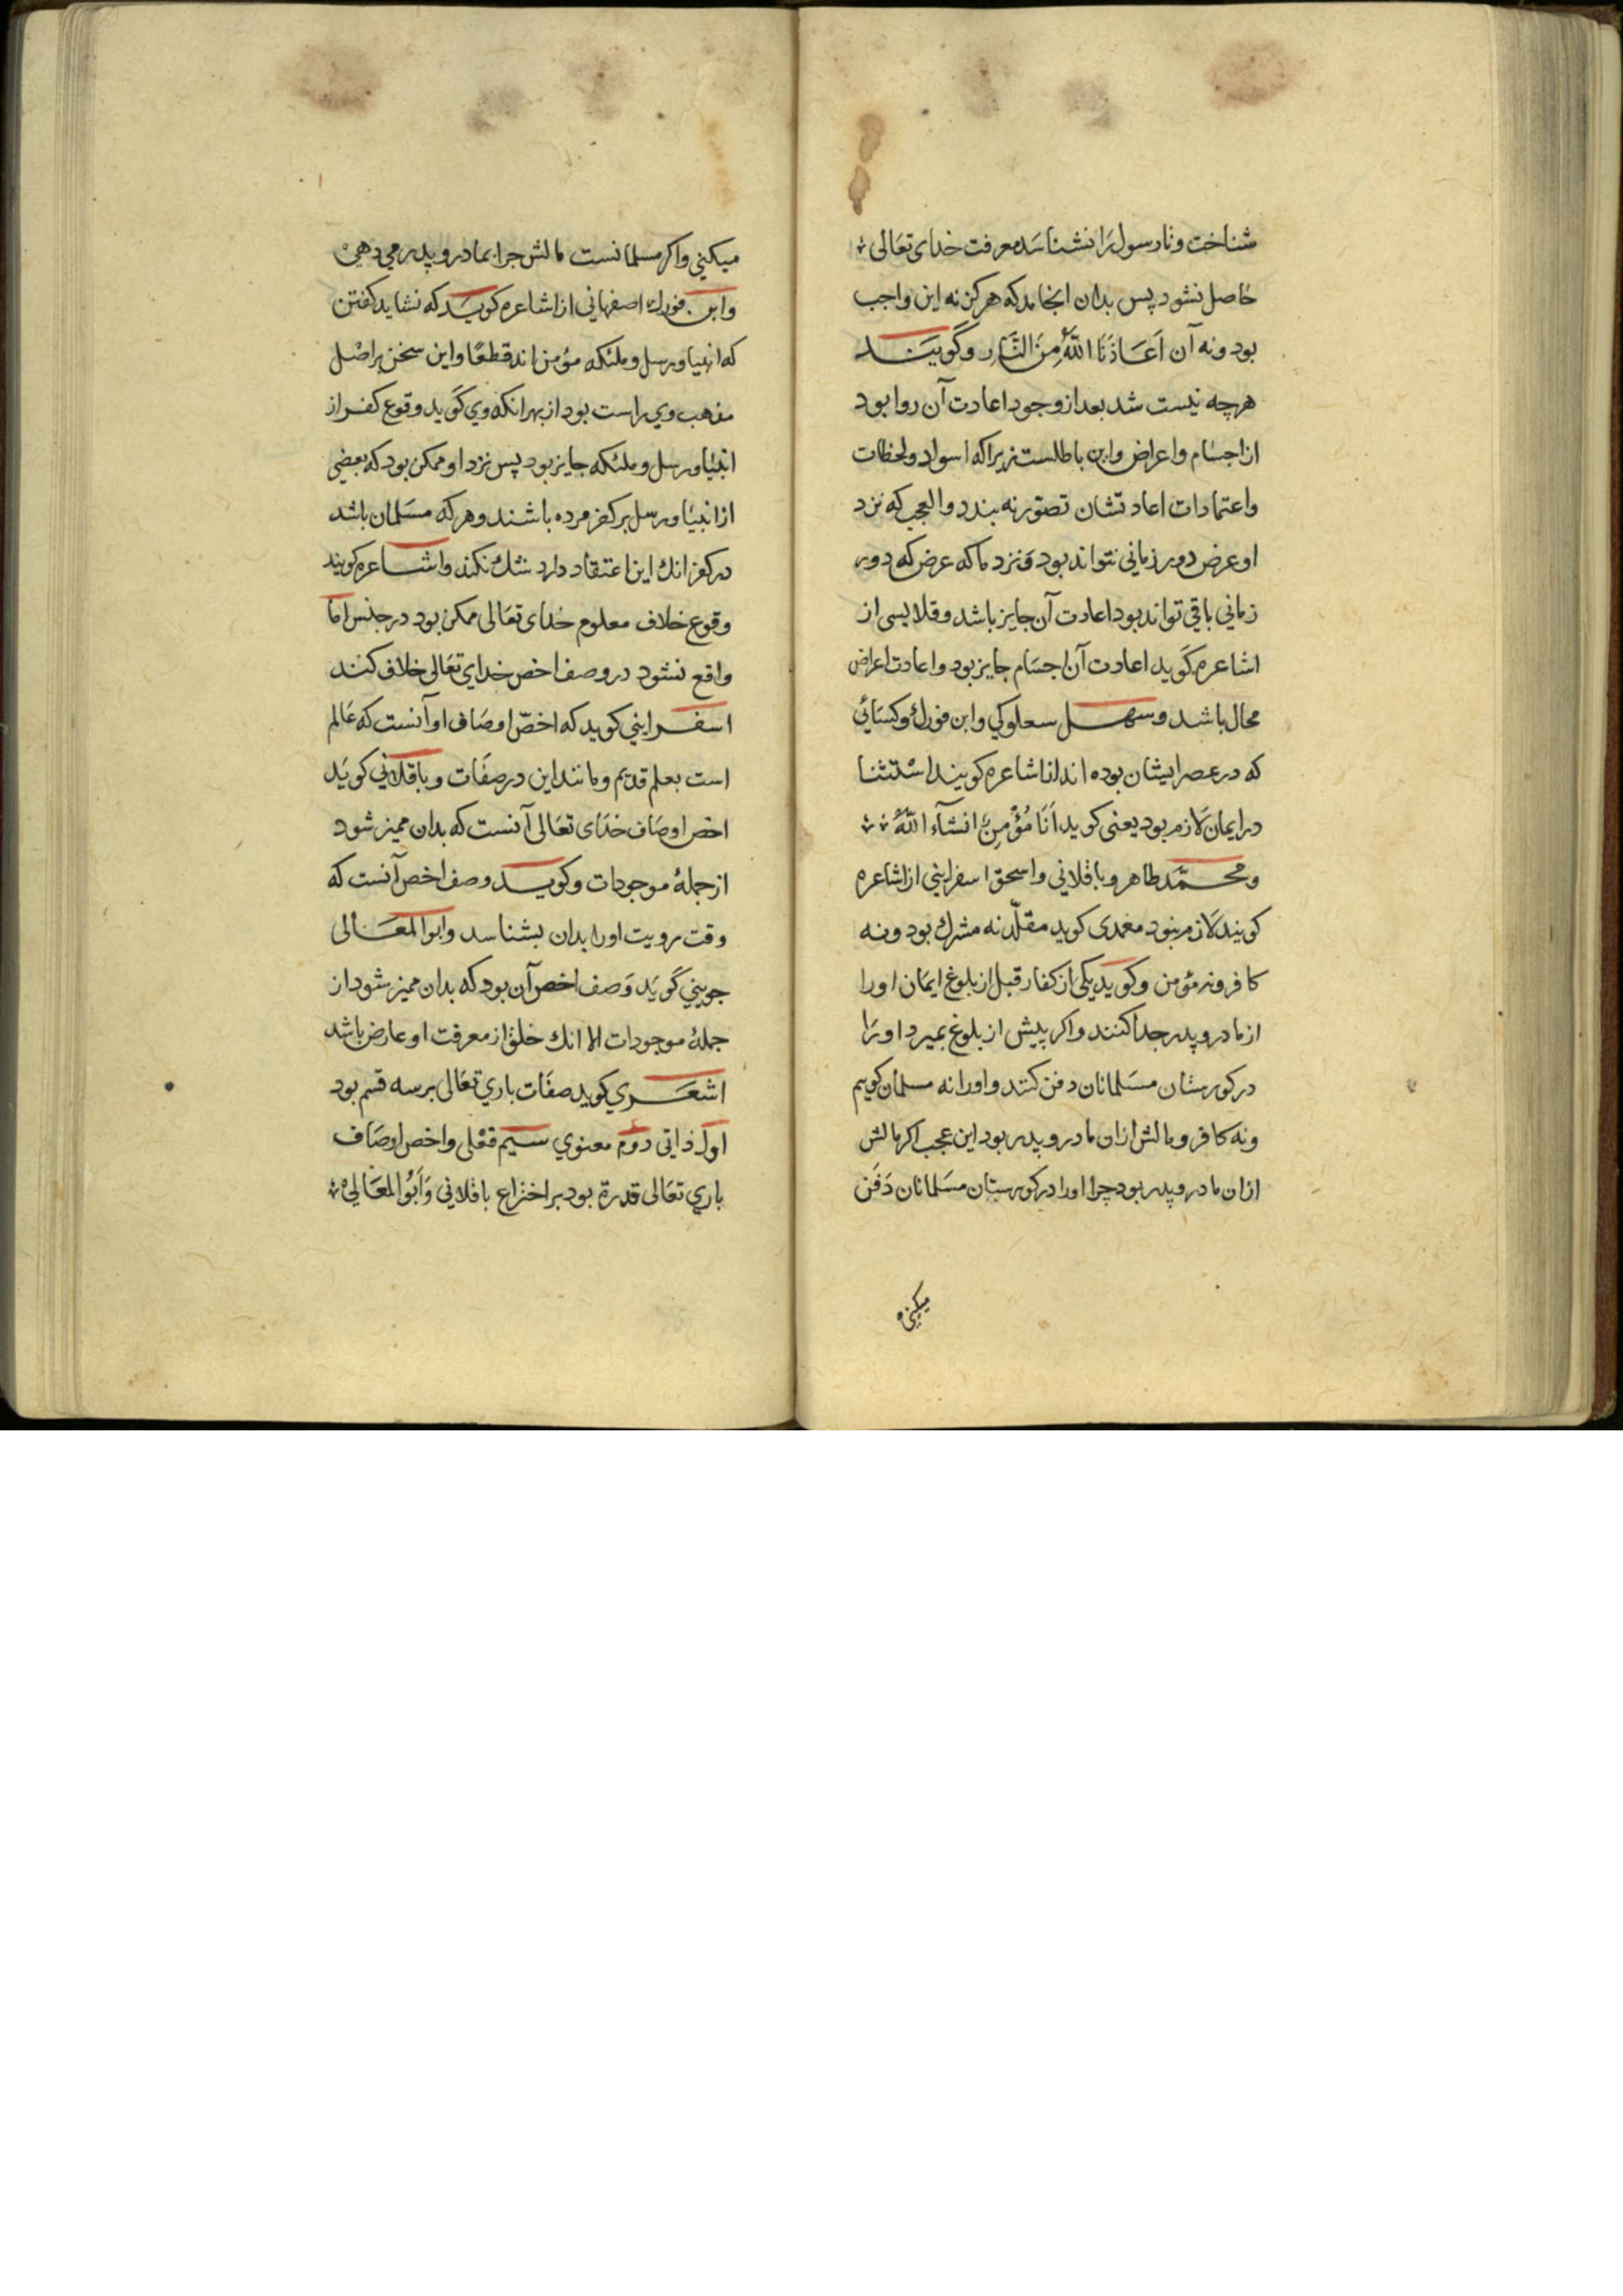 شناخت و تا رسول را نشناسد معرفت خدای تعالی
حاصل نشود پس بدان انجامد که هرگز نه این واجب
بود و نه آن اَعَاذَنَا اللّٰهُ مِنَ النَّارِ و گویند
هرچه نیست شد بعد از وجود اعادت آن روا بود
از اجسام و اعراض و این باطلست زیرا که اسواد ولحظات
واعتمادات اعادتشان تصور نه بندد والعجب که نزد
او عرض دور زمانی نتواند بود و نزد ما که عرض که دور
زمانی باقی تواند بود اعادت آن جایز باشد و قلایسی از
اشاعره گوید اعادت آن اجسام جایز بود و اعادت اعراض
محال باشد و سهل سعلوکی وابن فورك وکسائی
که در عصر ایشان بوده اند از اشاعره کویند استثنا
در ایمان لازم بود یعنی کوید اَنَا مُؤْمِنٌ انشآء اللّٰهُ
و محمّد طاهر و باقلانی و اسحق اسفراینی از اشاعره
کویند لازم نبود مغمدی کوید مقلّد نه مشرك بود و نه
کافر و نه مؤمن و کوید یکی از کفار قبل از بلوغ ایمان اورا
از مادر و پدر جدا کنند و اکر پیش از بلوغ بمیرد اورا
در کورستان مسلمانان دفن کنند و اورا نه مسلمان کویم
و نه کافر و مالش ازان مادر و پدر بود این عجب اکر مالش
ازان مادر و پدر بود چرا اورا در کورستان مسلمانان دَفَن
میکنی
میکنی و اکر مسلمانست مالش چرا بمادر و پدر می دهی
و ابن فورك اصفهانی از اشاعره کوید که نشاید کفتن
که انبیا و رسل و ملئکه مؤمن اند قطعًا و این سخن بر اصل
مذهب وی راست بود از بهر انکه وی گوید وقوع کفر از
انبیا و رسل و ملئکه جایز بود پس نزد او ممکن بود که بعضی
از انبیا و رسل بر کفر مرده باشند و هر که مسلمان باشد
در کفر انك این اعتقاد دارد شك نکند و اشاعره کویند
وقوع خلاف معلوم خدای تعالی ممکن بود در جنس اما
واقع نشود در وصف اخص خدای تعالی خلاف کنند
اسفراینی کوید که اخصّ اوصاف او آنست که عالم
است بعلم قدیم و مانند این در صفات و باقلانی کوید
اخص اوصاف خدای تعالی آنست که بدان ممیز شود
از جملهٔ موجودات و کوید وصف اخص آنست که
وقت رویت اورا بدان بشناسد و ابو المعالی
جوینی گوید وصف اخص آن بود که بدان ممیز شود از
جملهٔ موجودات الا انك خلق از معرفت او عارض باشد
اشعری کوید صفات باری تعالی بر سه قسم بود
اول ذاتی دوم معنوی سیم فعلی و اخص اوصاف
باری تعالی قدرة بود بر اختراع باقلانی وَاَبُوالمعَالی